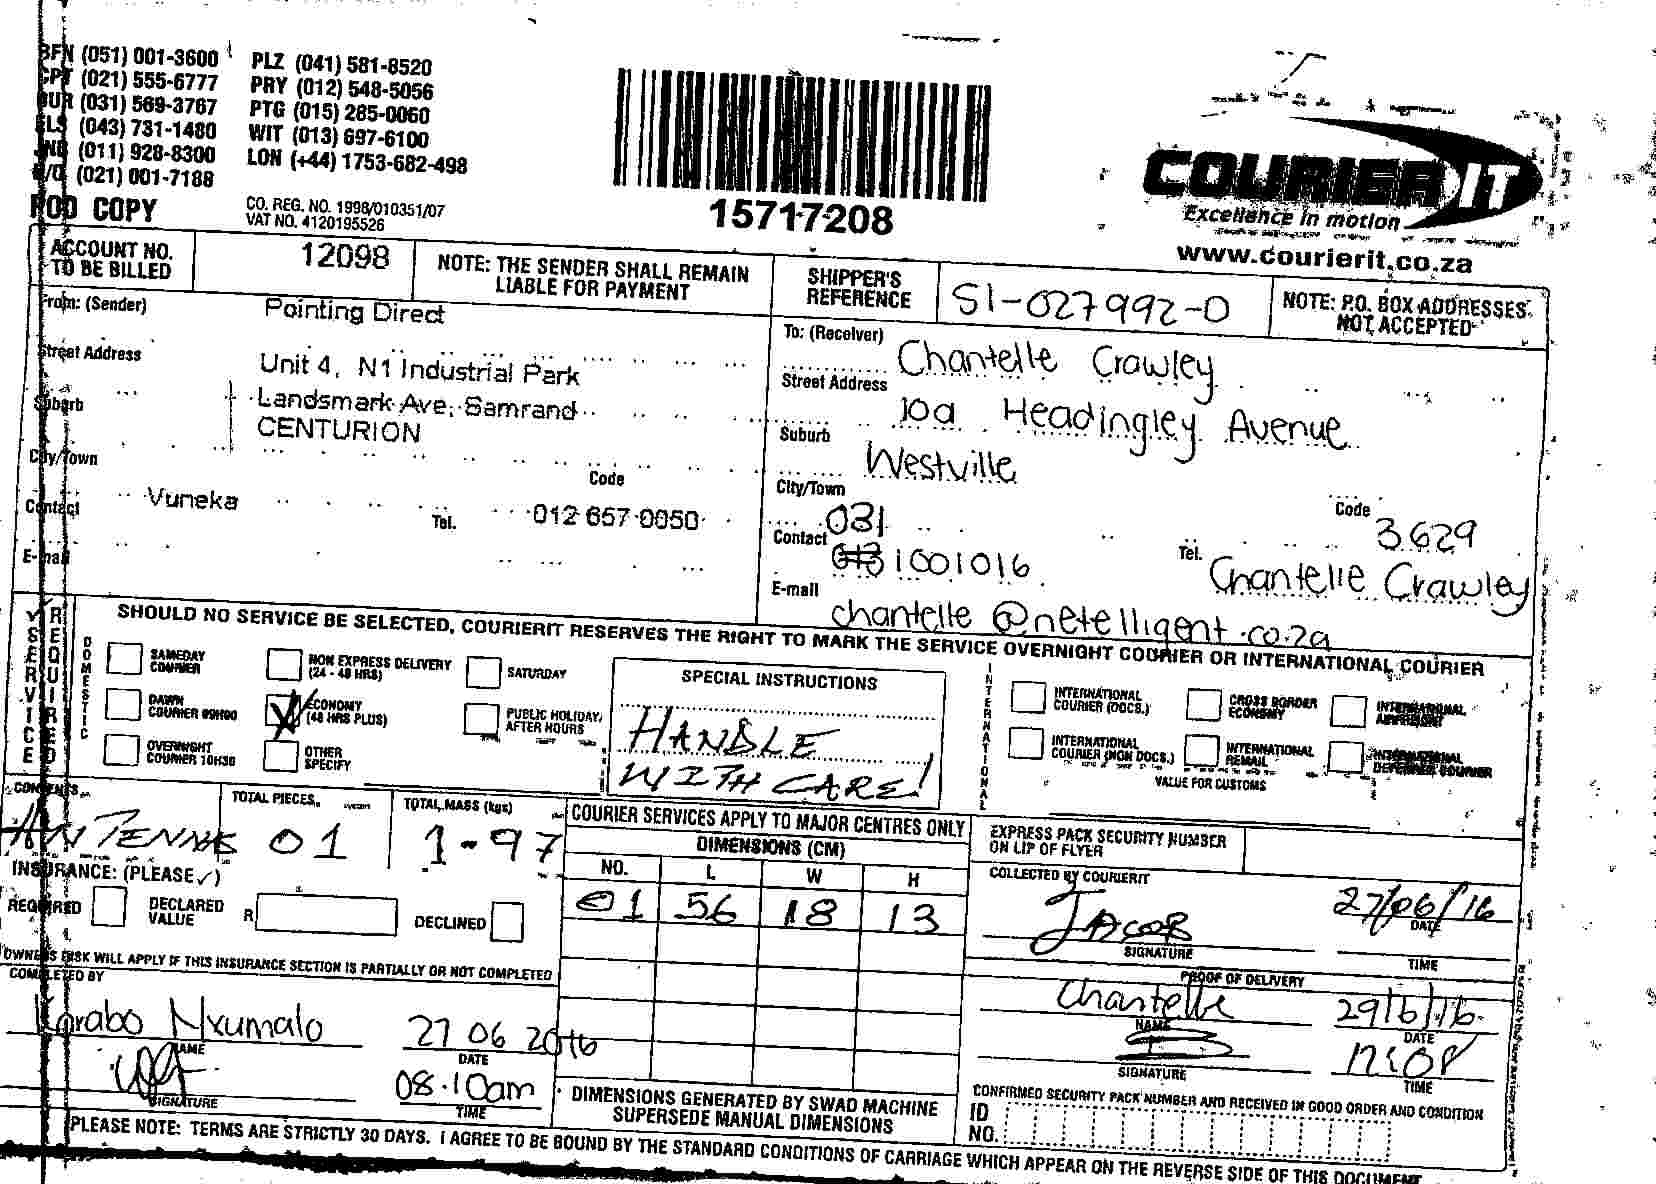 BFN (051) 001-3600
CPT (021) 555-6777
DUR (031) 569-3767
ELS (043) 731-1480
JNB (011) 928-8300
H/O (021) 001-7188
PLZ (041) 581-8520
PRY (012) 548-5056
PTG (015) 285-0060
WIT (013) 697-6100
LON (+44) 1753-682-498
POD COPY
CO. REG. NO. 1998/010351/07
VAT NO. 4120195526
15717208
COURIER IT
Excellence in motion
www.courierit.co.za
ACCOUNT NO.
TO BE BILLED
12098
NOTE: THE SENDER SHALL REMAIN
LIABLE FOR PAYMENT
SHIPPER'S
REFERENCE
SI-027992-0
NOTE: P.O. BOX ADDRESSES
NOT ACCEPTED
From: (Sender)
Pointing Direct
Street Address
Unit 4, N1 Industrial Park
Suburb
Landsmark Ave, Samrand
CENTURION
City/Town
Code
Contact
Vuneka
Tel.
012 657 0050
E-mail
To: (Receiver)
Chantelle Crawley
Street Address
10a Headingley Avenue
Suburb
Westville
City/Town
031
Code
3629
Contact
1001016
Tel.
Chantelle Crawley
E-mail
chantelle@netelligent.co.za
SHOULD NO SERVICE BE SELECTED, COURIERIT RESERVES THE RIGHT TO MARK THE SERVICE OVERNIGHT COURIER OR INTERNATIONAL COURIER
✓ SERVICE
REQUIRED
DOMESTIC
SAMEDAY
COURIER
DAWN
COURIER 09H00
OVERNIGHT
COURIER 10H30
NON EXPRESS DELIVERY
(24 - 48 HRS)
ECONOMY
(48 HRS PLUS)
OTHER
SPECIFY
SATURDAY
PUBLIC HOLIDAY/
AFTER HOURS
SPECIAL INSTRUCTIONS
HANDLE
WITH CARE!
INTERNATIONAL
INTERNATIONAL
COURIER (DOCS.)
INTERNATIONAL
COURIER (NON DOCS.)
CROSS BORDER
ECONOMY
INTERNATIONAL
REMAIL
INTERNATIONAL
AIRFREIGHT
INTERNATIONAL
DEFERRED COURIER
VALUE FOR CUSTOMS
CONTENTS
ANTENNAE
TOTAL PIECES
01
TOTAL MASS (kgs)
1-97
INSURANCE: (PLEASE ✓)
REQUIRED
DECLARED
VALUE
R
DECLINED
OWNERS RISK WILL APPLY IF THIS INSURANCE SECTION IS PARTIALLY OR NOT COMPLETED
COURIER SERVICES APPLY TO MAJOR CENTRES ONLY
DIMENSIONS (CM)
NO. L W H
01 56 18 13
DIMENSIONS GENERATED BY SWAD MACHINE
SUPERSEDE MANUAL DIMENSIONS
EXPRESS PACK SECURITY NUMBER
ON LIP OF FLYER
COLLECTED BY COURIERIT
Jacob
SIGNATURE
27/06/16
DATE
TIME
PROOF OF DELIVERY
Chantelle
NAME
29/6/16
DATE
SIGNATURE
12:08
TIME
CONFIRMED SECURITY PACK NUMBER AND RECEIVED IN GOOD ORDER AND CONDITION
ID
NO.
COMPLETED BY
Karabo Nxumalo
NAME
27 06 2016
DATE
SIGNATURE
08.10am
TIME
PLEASE NOTE: TERMS ARE STRICTLY 30 DAYS. I AGREE TO BE BOUND BY THE STANDARD CONDITIONS OF CARRIAGE WHICH APPEAR ON THE REVERSE SIDE OF THIS DOCUMENT